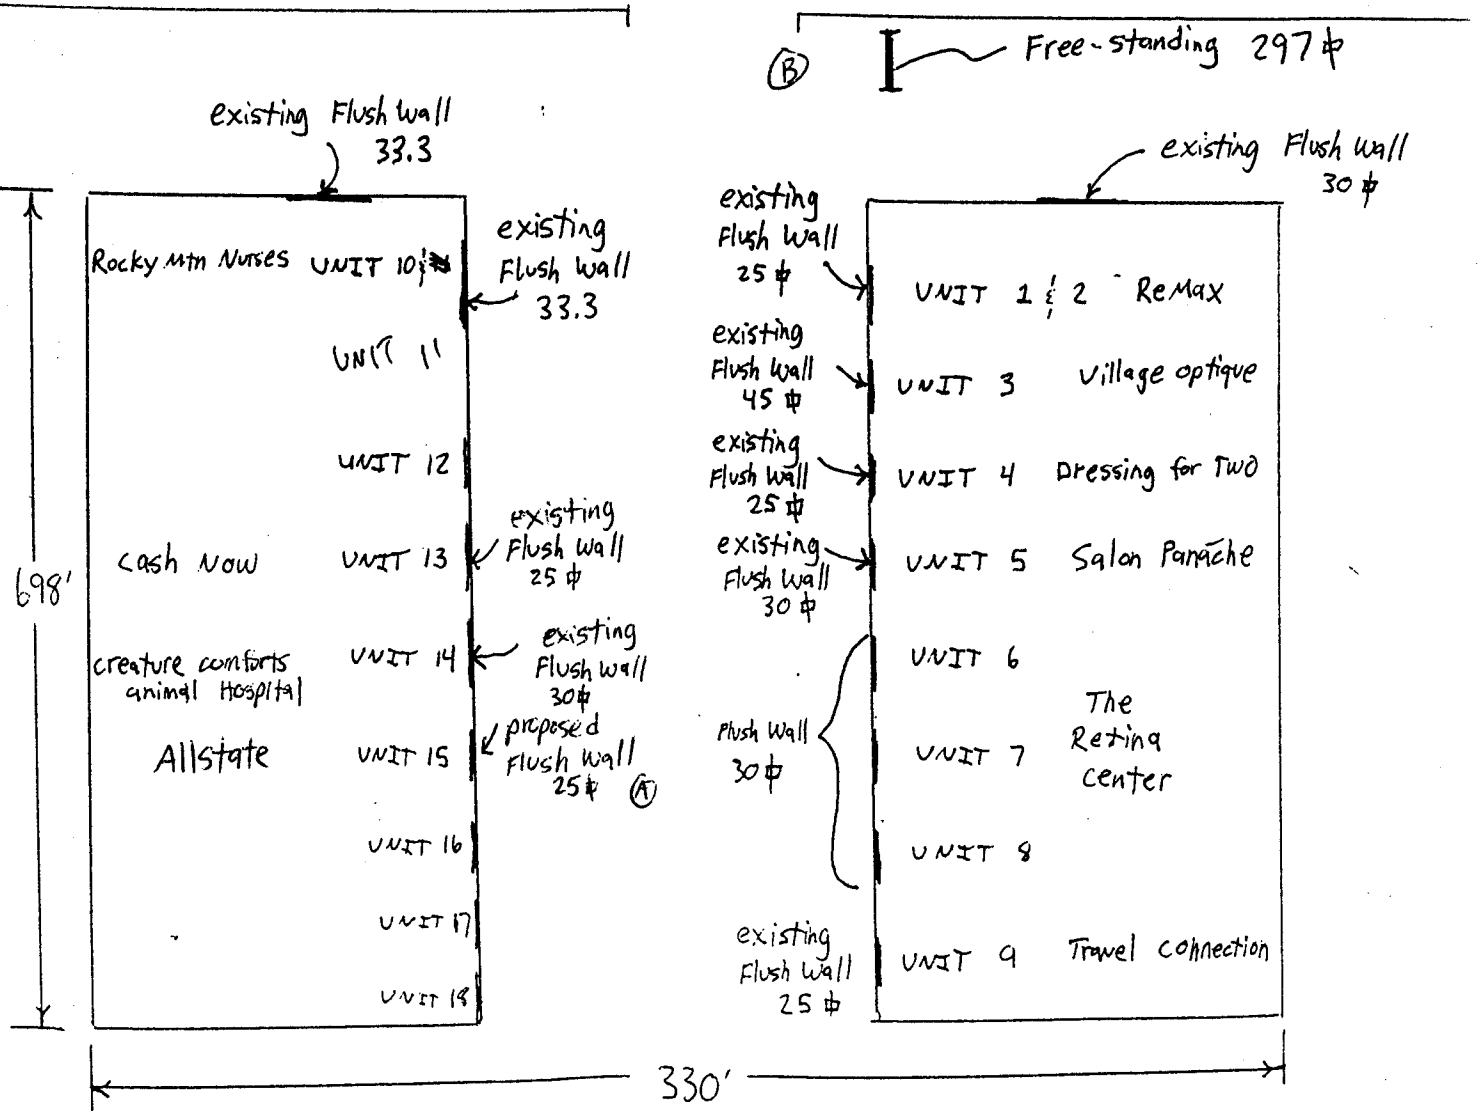 Free-standing 297 ⌷
B
existing Flush Wall
33.3
existing Flush Wall
30 ⌷
Rocky Mtn Nurses UNIT 10 &
existing
Flush Wall
33.3
UNIT 11
UNIT 12
existing
Flush Wall
25 ⌷
Cash Now UNIT 13
existing
Flush Wall
30 ⌷
creature comforts
animal Hospital
UNIT 14
proposed
Flush Wall
25 ⌷ A
Allstate UNIT 15
UNIT 16
UNIT 17
UNIT 18
698'
existing
Flush Wall
25 ⌷
UNIT 1 & 2 ReMax
existing
Flush Wall
45 ⌷
UNIT 3 Village optique
existing
Flush Wall
25 ⌷
UNIT 4 Dressing for Two
existing
Flush Wall
30 ⌷
UNIT 5 Salon Panache
UNIT 6
Flush Wall
30 ⌷
UNIT 7
The
Retina
Center
UNIT 8
existing
Flush Wall
25 ⌷
UNIT 9 Travel Connection
330'